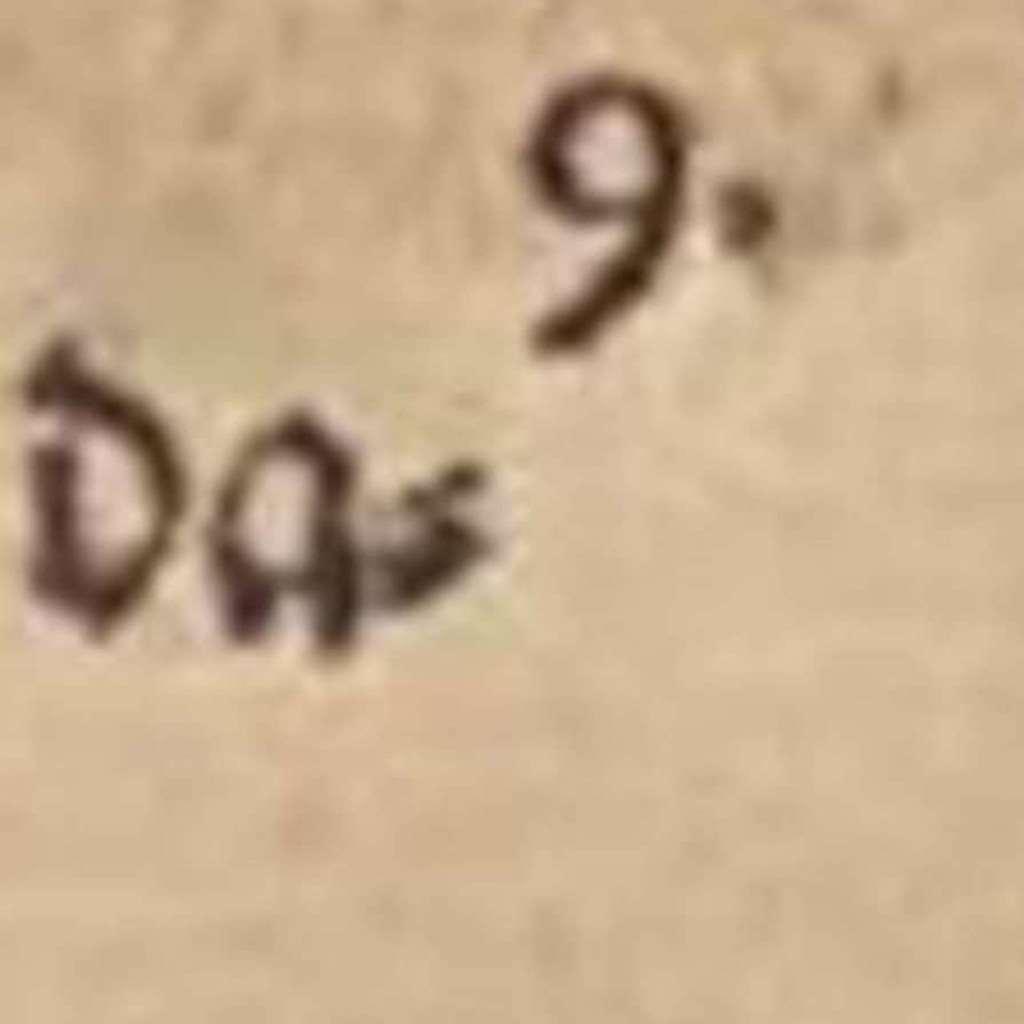 9.
Da=